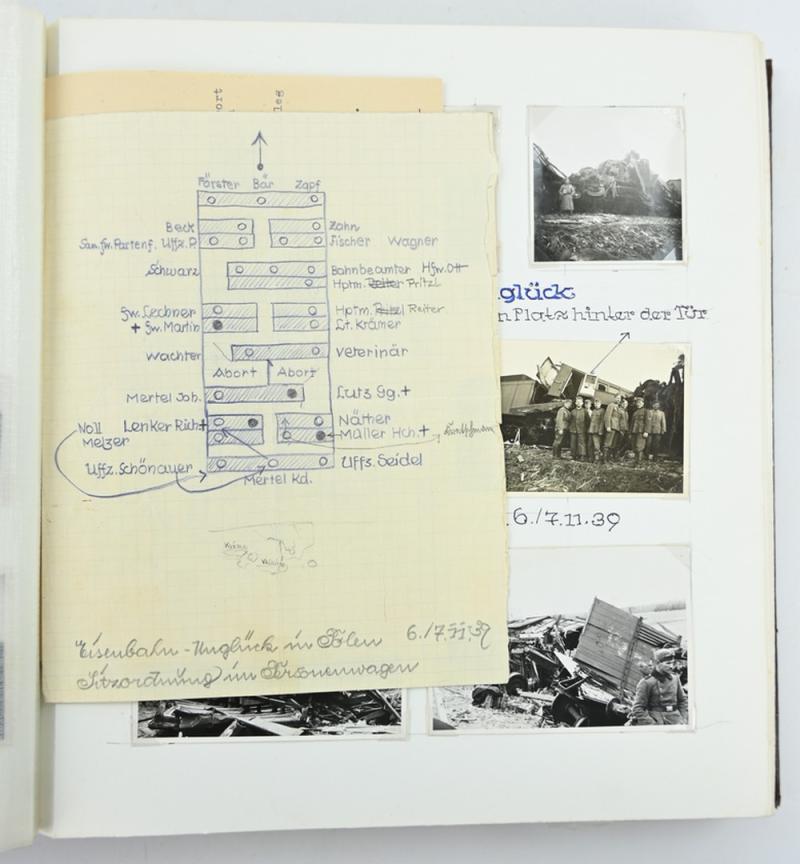 ort
leg
Förster Bär Zapf
Beck Zahn
San.fw. Partenf. Uffz. P. Fischer Wagner
Schwarz Bahnbeamter Hfw. Ott
Hptm. Reiter Pritzl
Fw. Lechner Hptm. Pritzl Reiter
+ Fw. Martin Lt. Krämer
Wachter Veterinär
Abort Abort
Mertel Joh. Lutz Gg. +
Noll Lenker Rich + Näther
Melzer Müller Hch. +
Uffz. Schönauer Uffz. Seidel
Mertel Kd.
Eisenbahn-Unglück in Polen 6./7.11.39
Sitzordnung im Personenwagen
glück
n Platz hinter der Tür
6./7.11.39